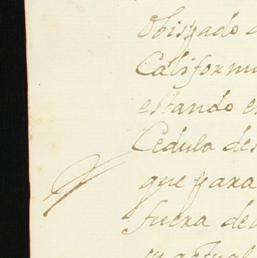 Obispado
Californi
estando e
Cedula des
que para
fuera de